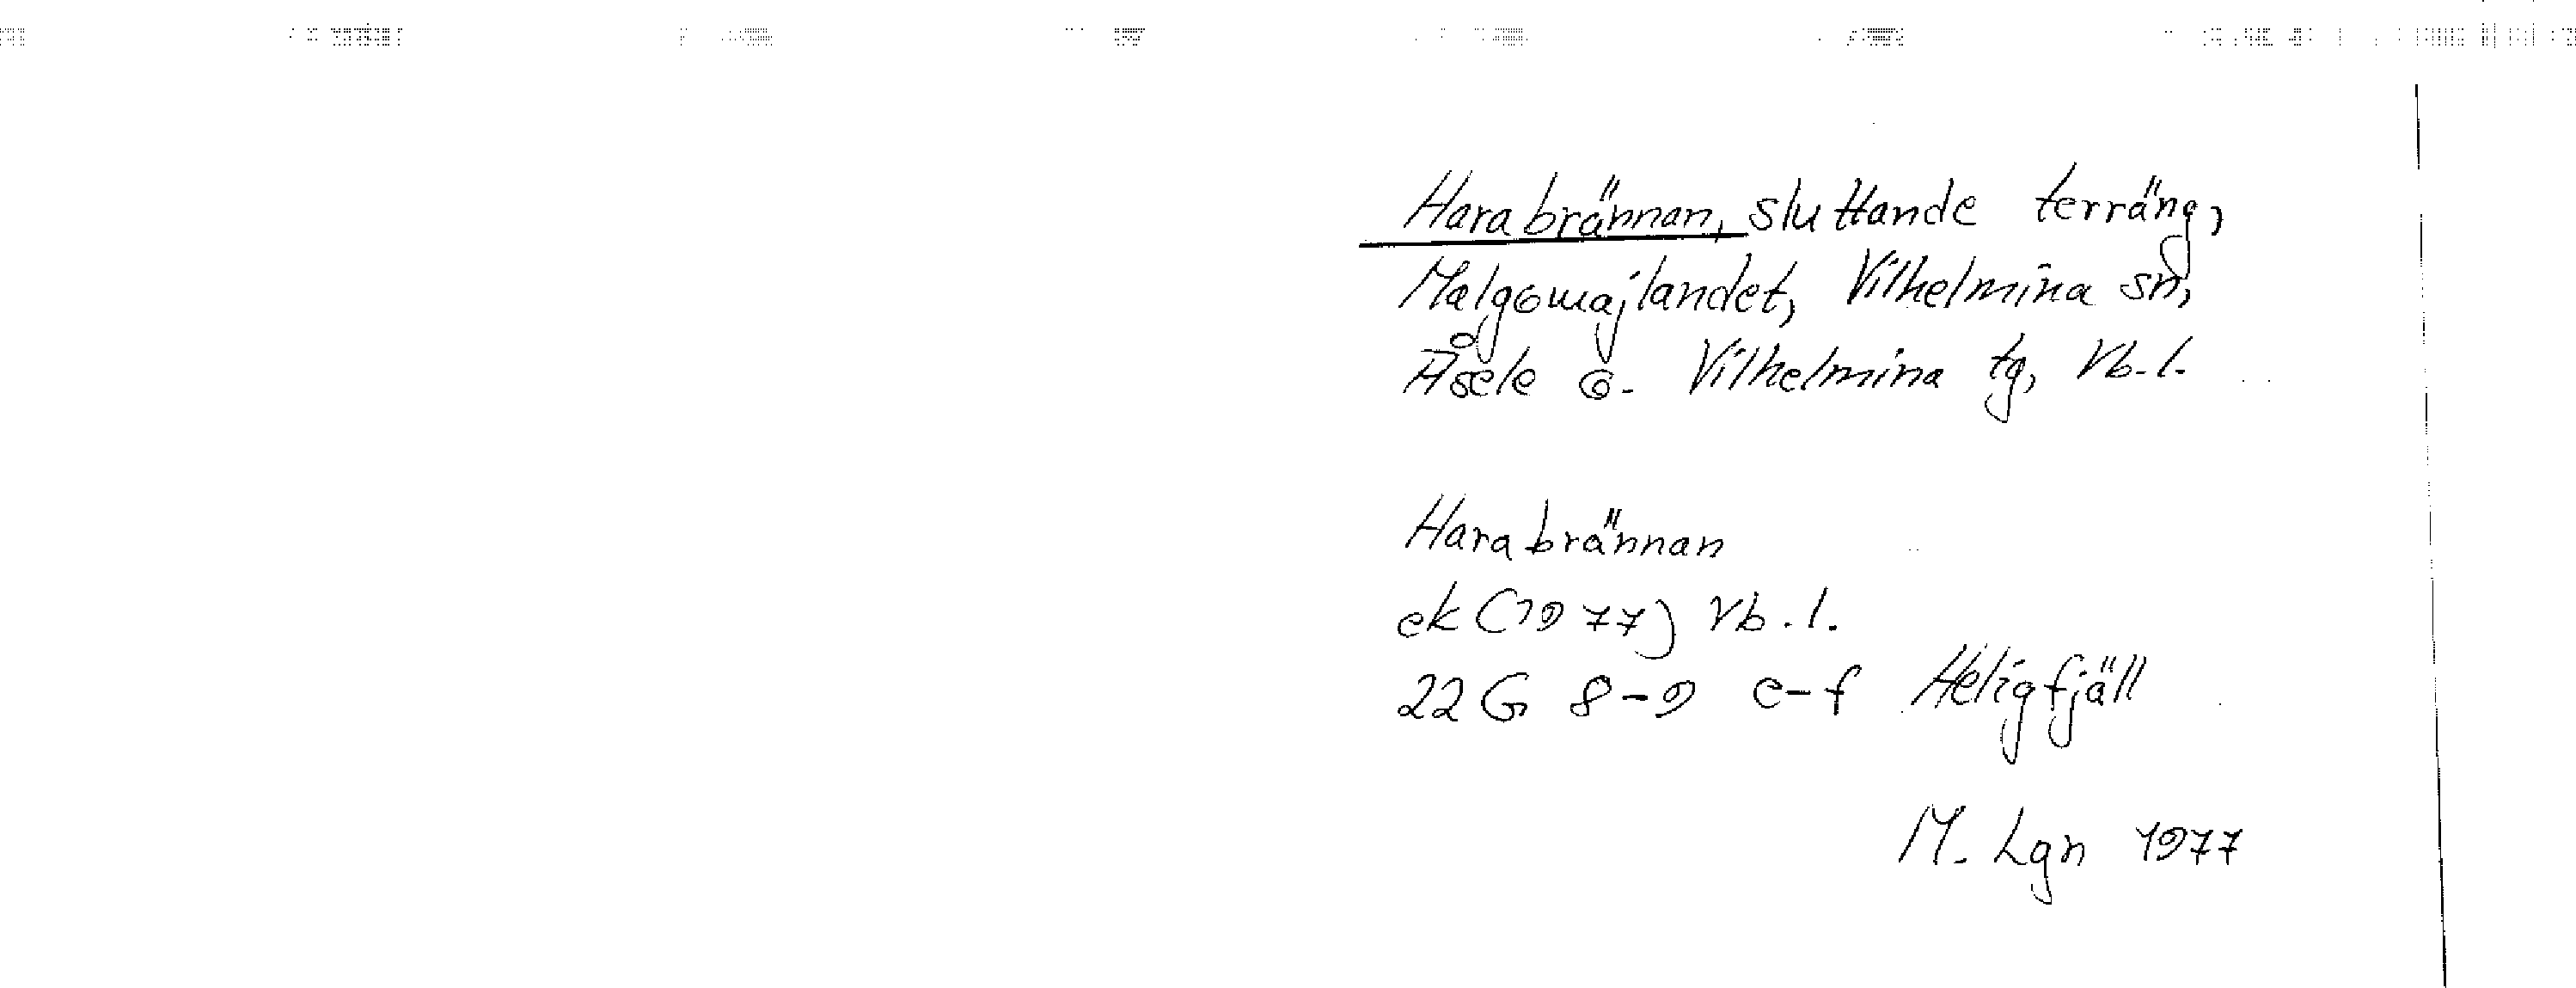 Harabrännan, sluttande terräng,
Malgomajlandet, Vilhelmina sn,
Åsele o. Vilhelmina tg, Vb. l.
Harabrännan
ek (1977) Vb. l.
22 G 8-9 e-f Heligfjäll
M. Lgn 1977